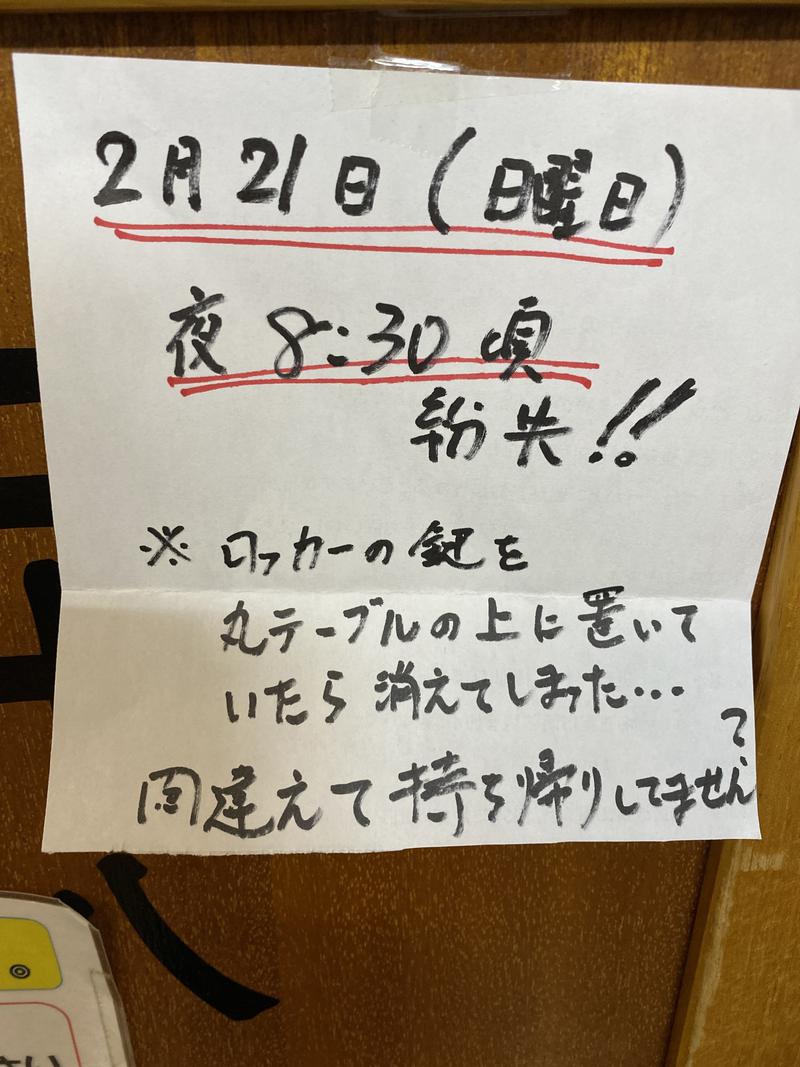 2月21日(日曜日)
夜8:30頃
紛失!!
※ ロッカーの鍵を
丸テーブルの上に置いて
いたら消えてしまった…
間違えて持ち帰りしてません?
さい